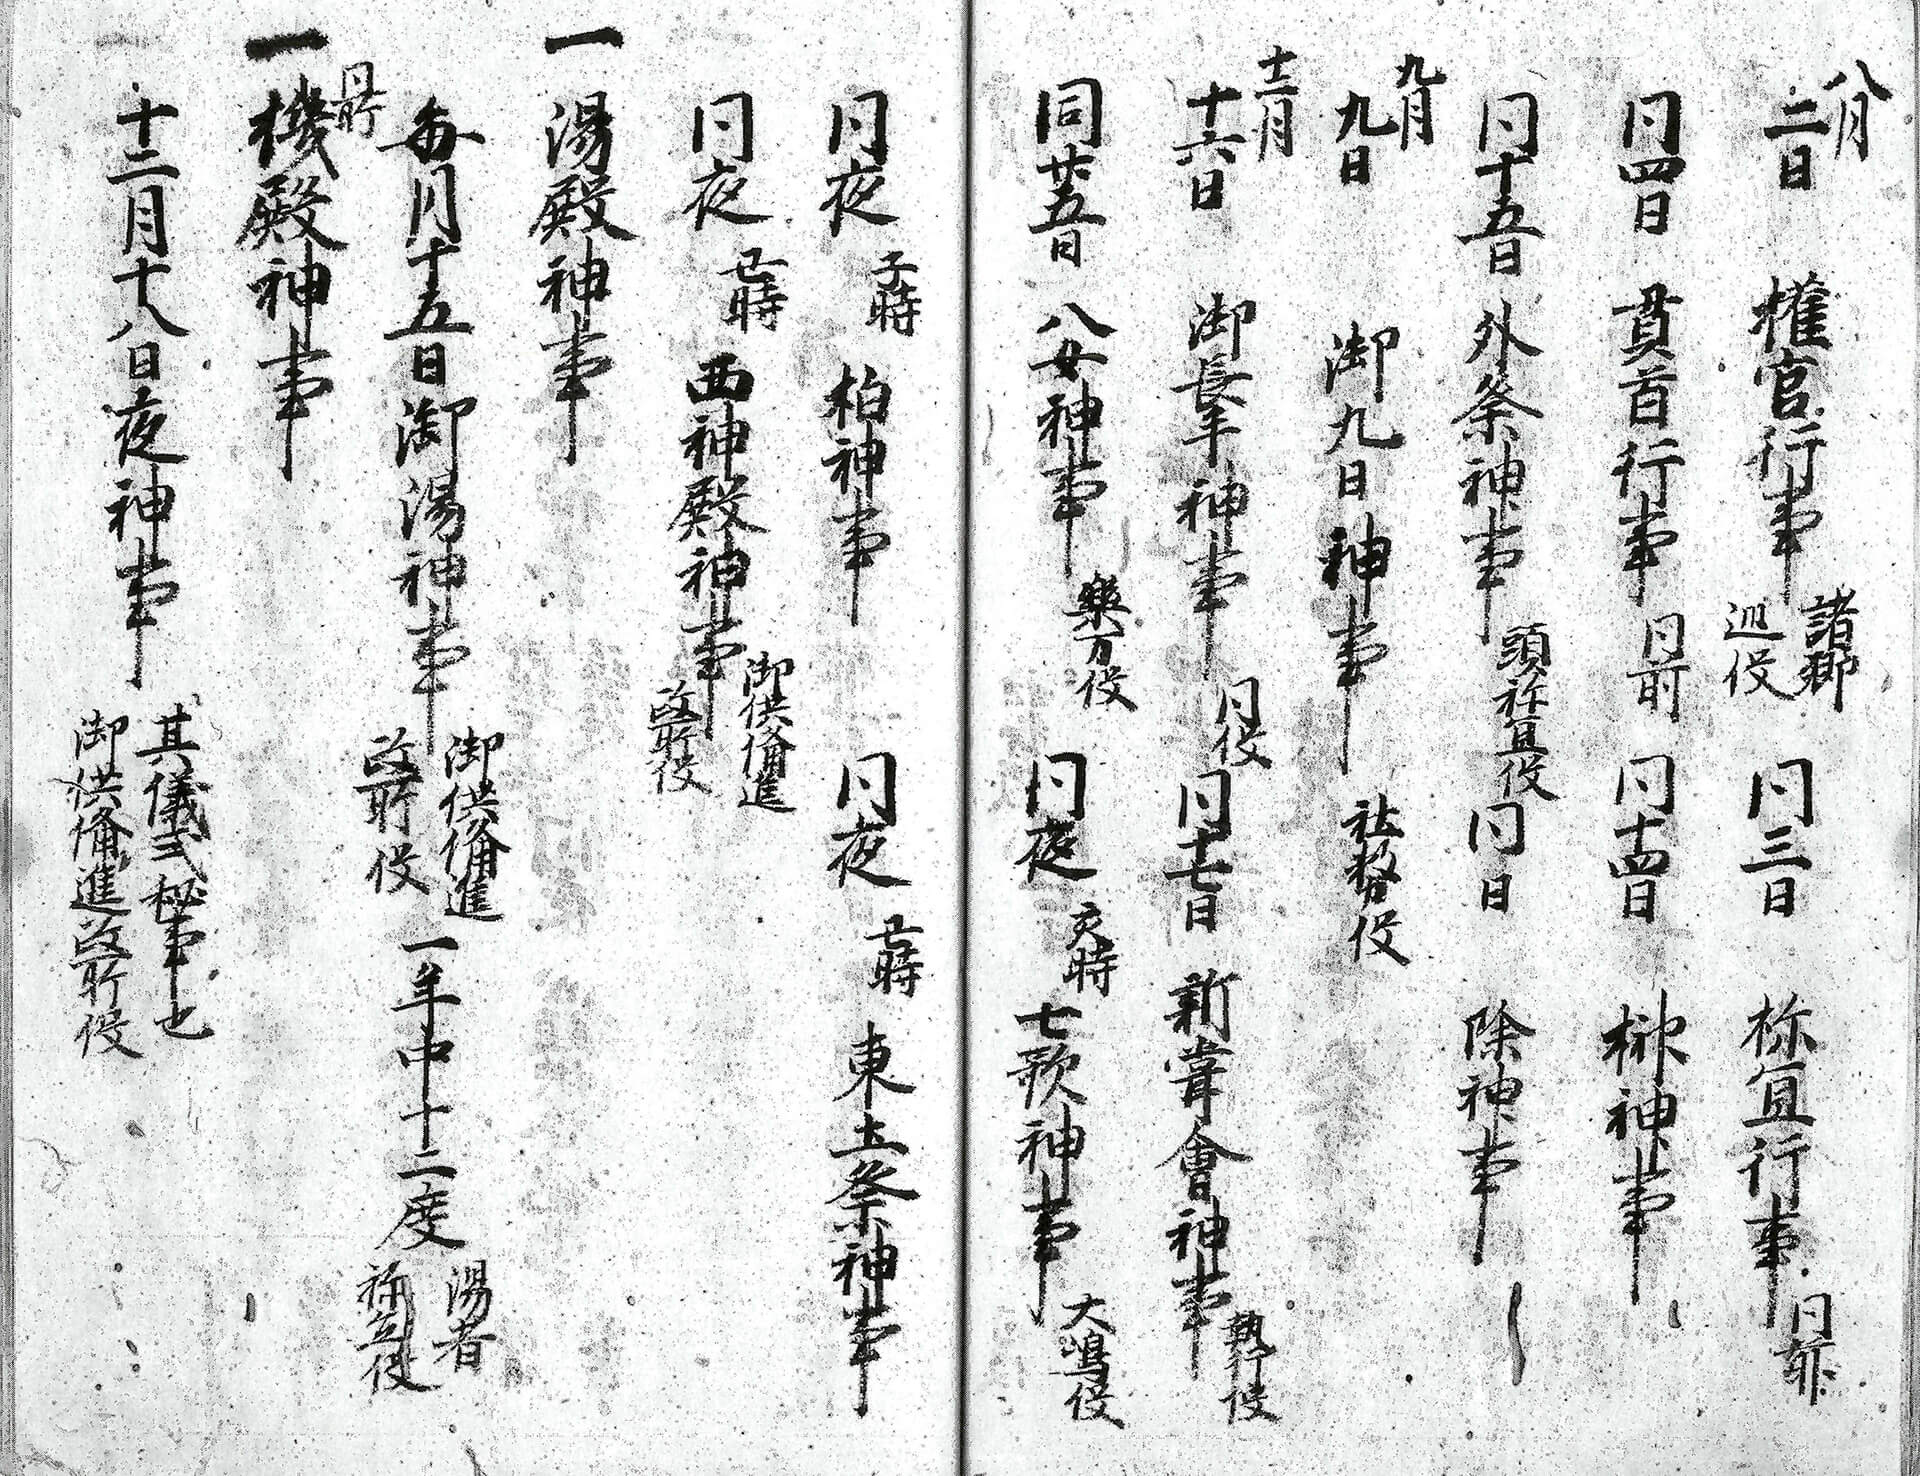 八月
二日 権官行事 諸郷巡役 同三日 祢宜行事 同前
同四日 貫首行事 同前 同十四日 榊神事
同十五日 外祭神事 頭祢宜役 同日 除神事
九月
九日 御九日神事 社務役
十一月
十六日 御長神事 同役 同十七日 新嘗會神事 執行役
同廿五日 八女神事 楽万役 同夜 亥時 七歌神事 大嶋役
同夜 子時 柏神事 同夜 丑時 東土祭神事
同夜 丑時 西神殿神事 御供備進政所役
一 湯殿神事
毎月十五日御湯神事 御供備進政所役 一年中十二度 湯者祢宜役
一 機殿神事
十二月十八日夜神事 其儀式秘事也御供備進政所役